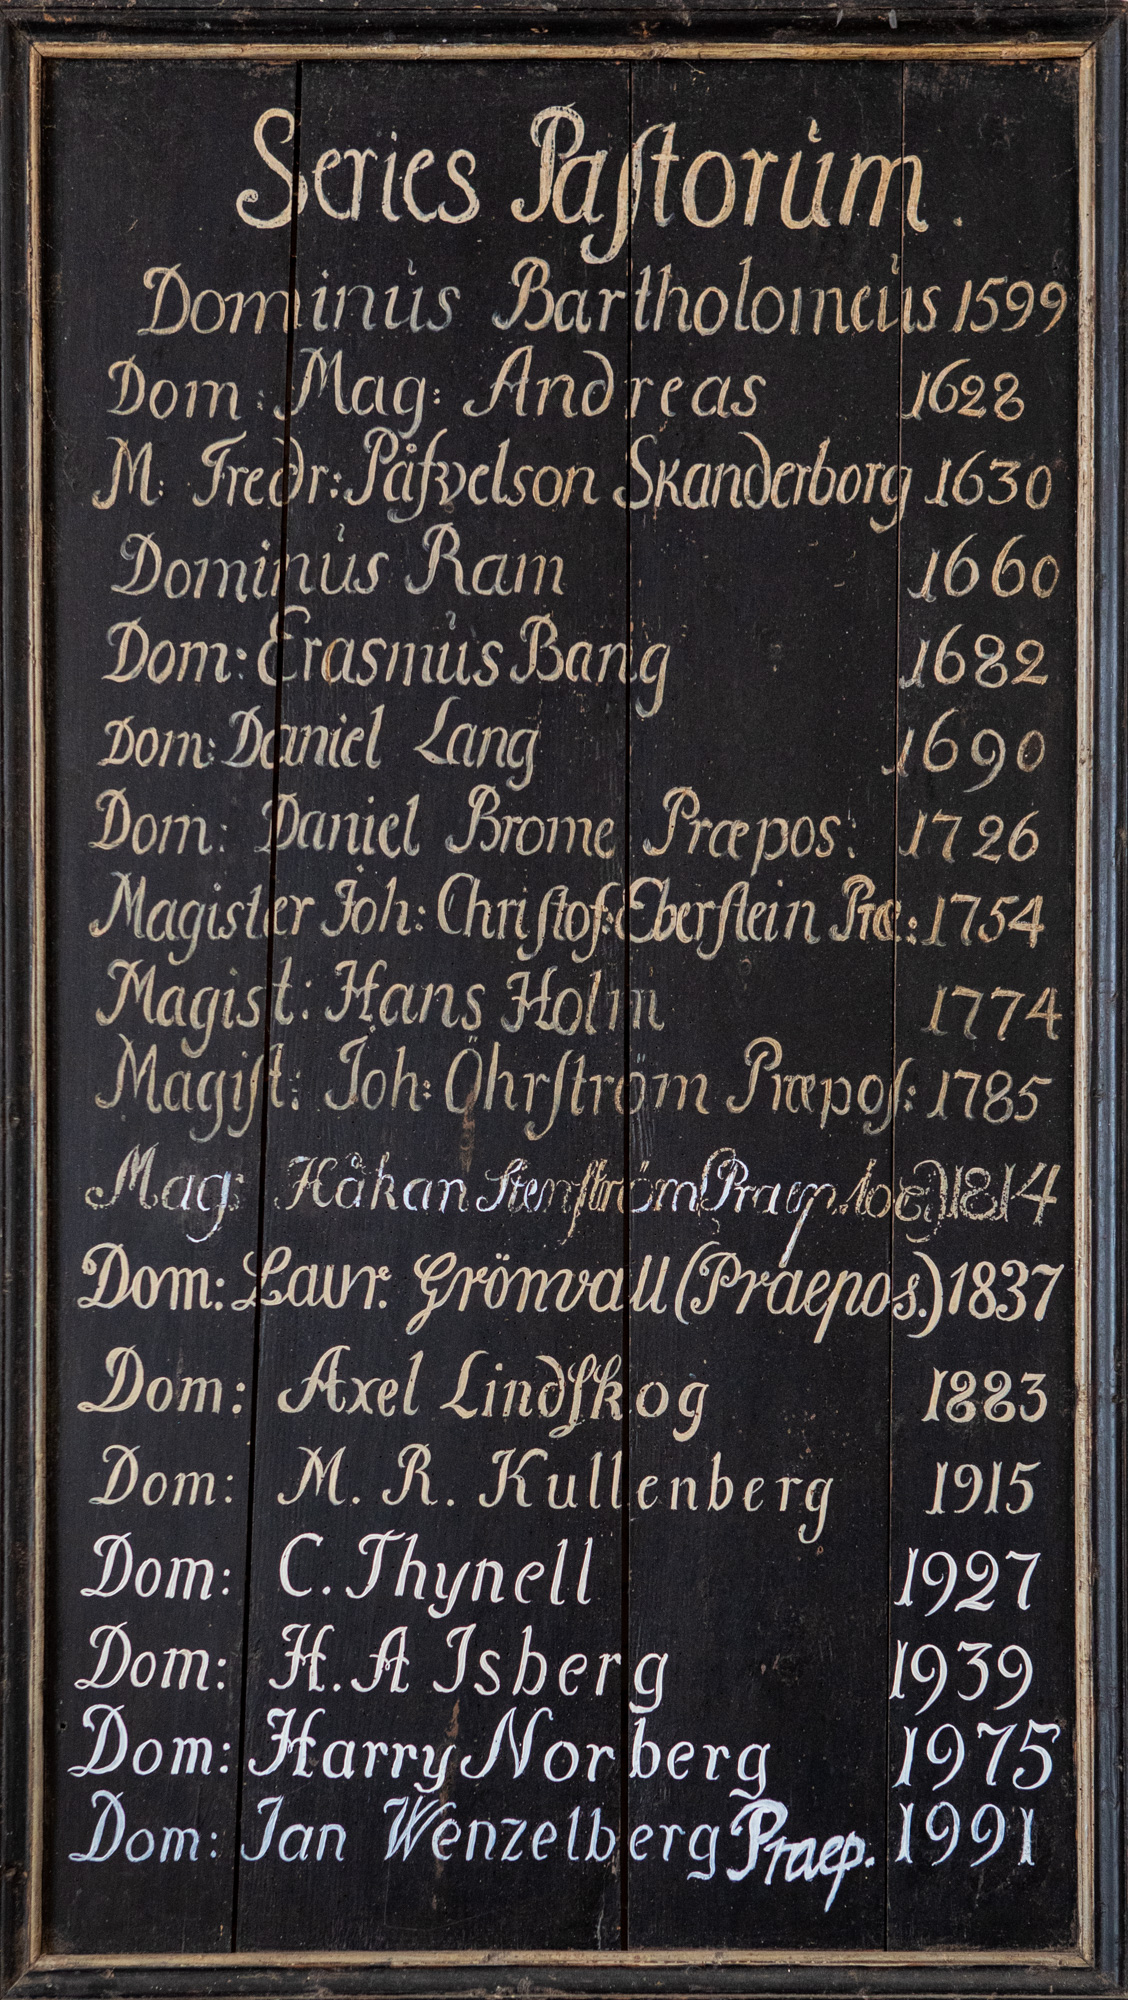 Series Paſtorům.
Dominůs Bartholomeůs 1599
Dom: Mag: Andreas 1628
M: Fredr: Påfvelson Skanderborg 1630
Dominůs Ram 1660
Dom: Erasmůs Bang 1682
Dom: Daniel Lang 1690
Dom: Daniel Brome Præpos: 1726
Magister Joh: Chriſtof: Eberſtein Præ: 1754
Magist: Hans Holm 1774
Magiſt: Joh: Öhrſtröm Præpoſ: 1785
Mag: Håkan Stenſtröm 1814
Dom: Laur. Grönvall (Praepos.) 1837
Dom: Axel Lindſkog 1883
Dom: M. R. Kullenberg 1915
Dom: C. Thynell 1927
Dom: H. A Isberg 1939
Dom: Harry Norberg 1975
Dom: Jan Wenzelberg Praep. 1991